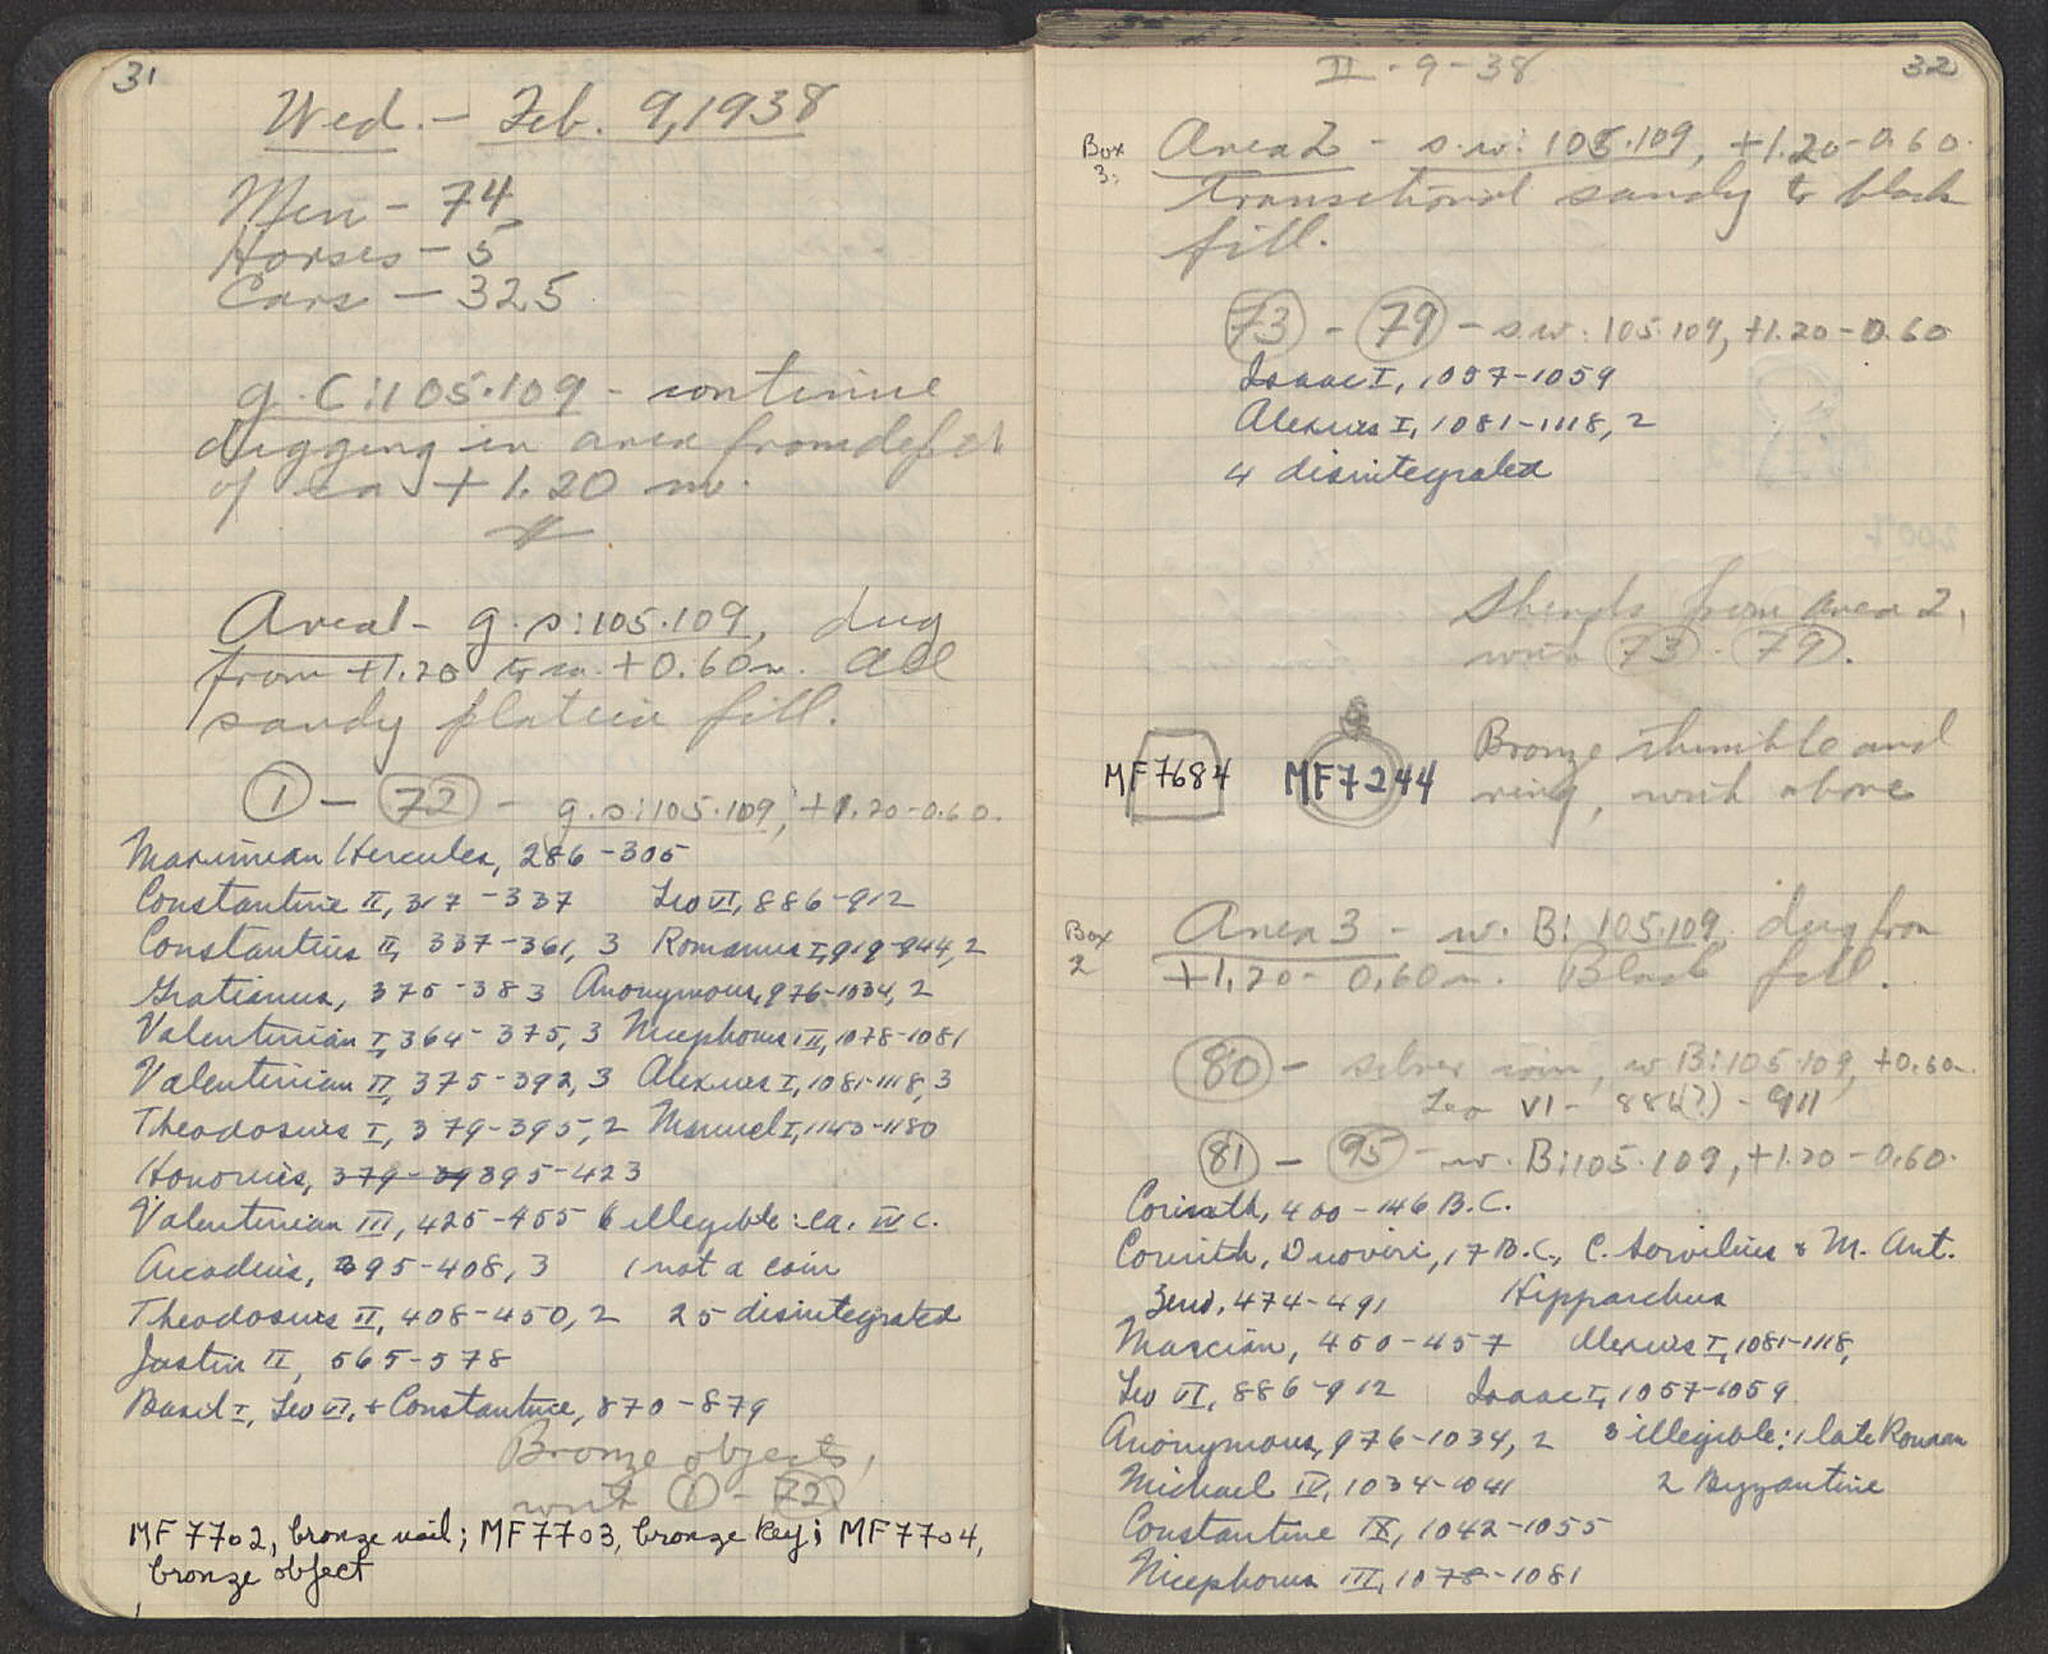 31
Wed. - Feb. 9, 1938
Men - 74
Horses - 5
Cars - 325
g. C:105.109 - continue
digging in area from depth
of ca + 1.20 m.
Area 1 - g. s:105.109, dug
from +1.20 to ca. +0.60 m. All
sandy plateia fill.
1 - 72 - g. s:105.109, +1.20-0.60.
Maximian Hercules, 286-305
Constantine II, 317-337 Leo VI, 886-912
Constantius II, 337-361, 3 Romanus I, 919-944, 2
Gratianus, 375-383 Anonymous, 976-1034, 2
Valentinian I, 364-375, 3 Nicephorus III, 1078-1081
Valentinian II, 375-392, 3 Alexius I, 1081-1118, 3
Theodosius I, 379-395, 2 Manuel I, 1143-1180
Honorius, 379-39 395-423
Valentinian III, 425-455 6 illegible: ca. IV c.
Arcadius, 395-408, 3 1 not a coin
Theodosius II, 408-450, 2 25 disintegrated
Justin II, 565-578
Basil I, Leo VI, + Constantine, 870-879
Bronze objects,
with 1 - 72
MF 7702, bronze nail; MF 7703, bronze key; MF 7704,
bronze object
II - 9 - 38
32
Box
3:
Area 2 - s.w: 105.109, +1.20-0.60.
Transitional sandy to black
fill.
73 - 79 - s.w: 105.109, +1.20-0.60
Isaac I, 1057-1059
Alexius I, 1081-1118, 2
4 disintegrated
Sherds from area 2,
with 73 - 79.
MF 7684 MF 7244
Bronze thimble and
ring, with above
Box
2
Area 3 - w. B: 105.109, dug from
+1.20 - 0.60 m. Black fill.
80 - silver coin, w B:105.109, +0.60m.
Leo VI - 886(?) - 911
81 - 95 - w. B:105.109, +1.20-0.60.
Corinth, 400-146 B.C.
Corinth, Duoviri, 17 B.C., C. Servilius & M. Ant.
Hipparchus
Zeno, 474-491
Marcian, 450-457 Alexius I, 1081-1118,
Leo VI, 886-912 Isaac I, 1057-1059
Anonymous, 976-1034, 2 3 illegible: 1 late Roman
Michael IV, 1034-1041 2 Byzantine
Constantine IX, 1042-1055
Nicephorus III, 1078-1081